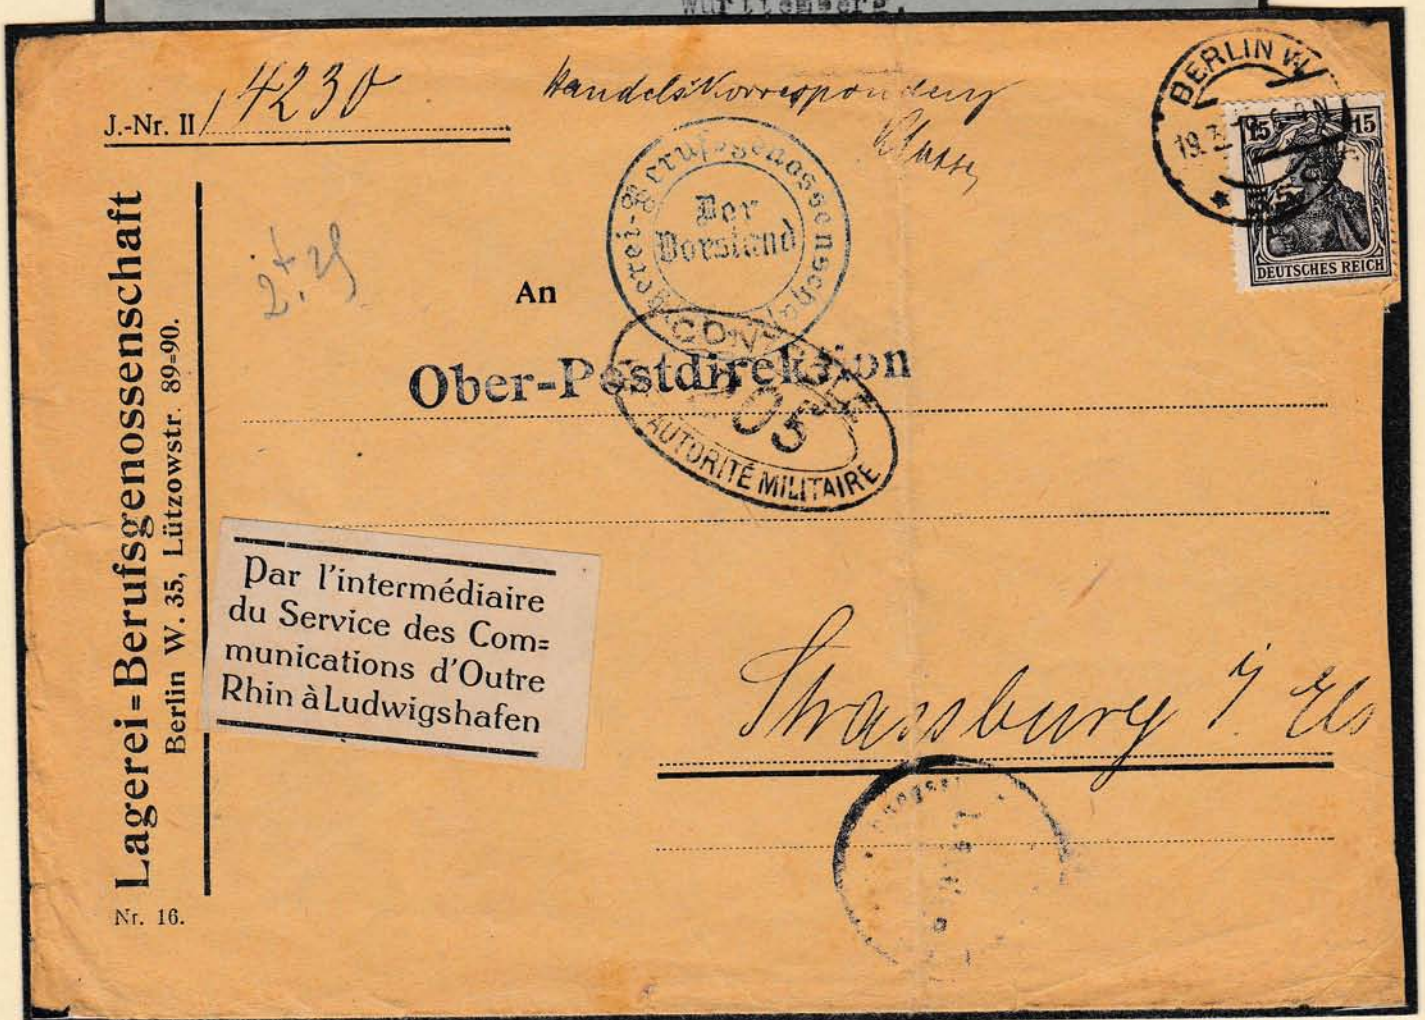 Württemberg.
J.-Nr. II / 4230
Handelskorrespondenz
BERLIN W.
19.
15 15
DEUTSCHES REICH
Lagerei=Berufsgenossenschaft
Berlin W. 35, Lützowstr. 89=90.
Nr. 16.
Der
Vorstand
An
Ober-Postdirektion
AUTORITÉ MILITAIRE
Par l'intermédiaire
du Service des Com=
munications d'Outre
Rhin à Ludwigshafen
Strassburg i/ Els